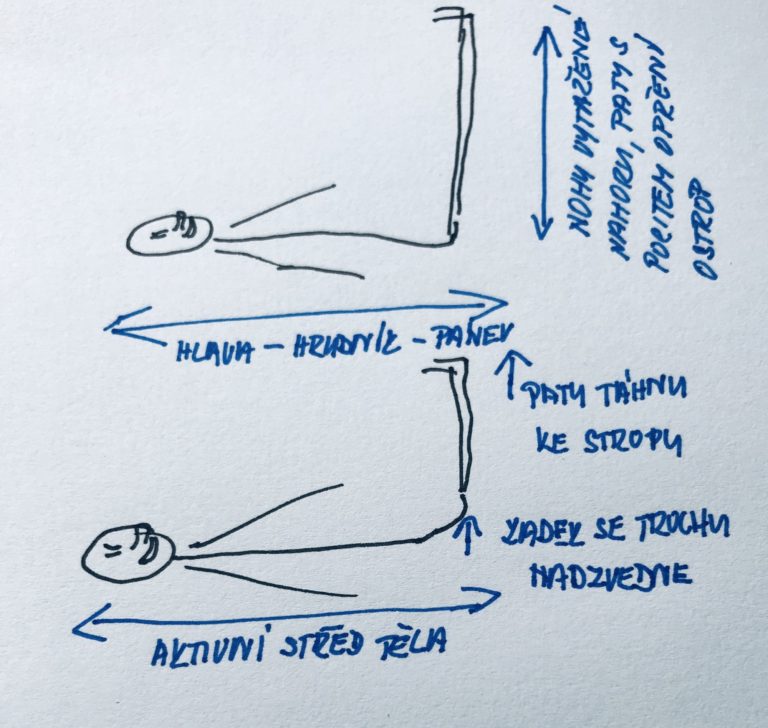 NOHY VYTAŽENÉ
NAHORU, PATY S
POCITEM OPŘENÍ
O STROP
HLAVA – HRUDNÍK – PÁNEV
PATY TÁHNU
KE STROPU
ZADEK SE TROCHU
NADZVEDNE
AKTIVNÍ STŘED TĚLA